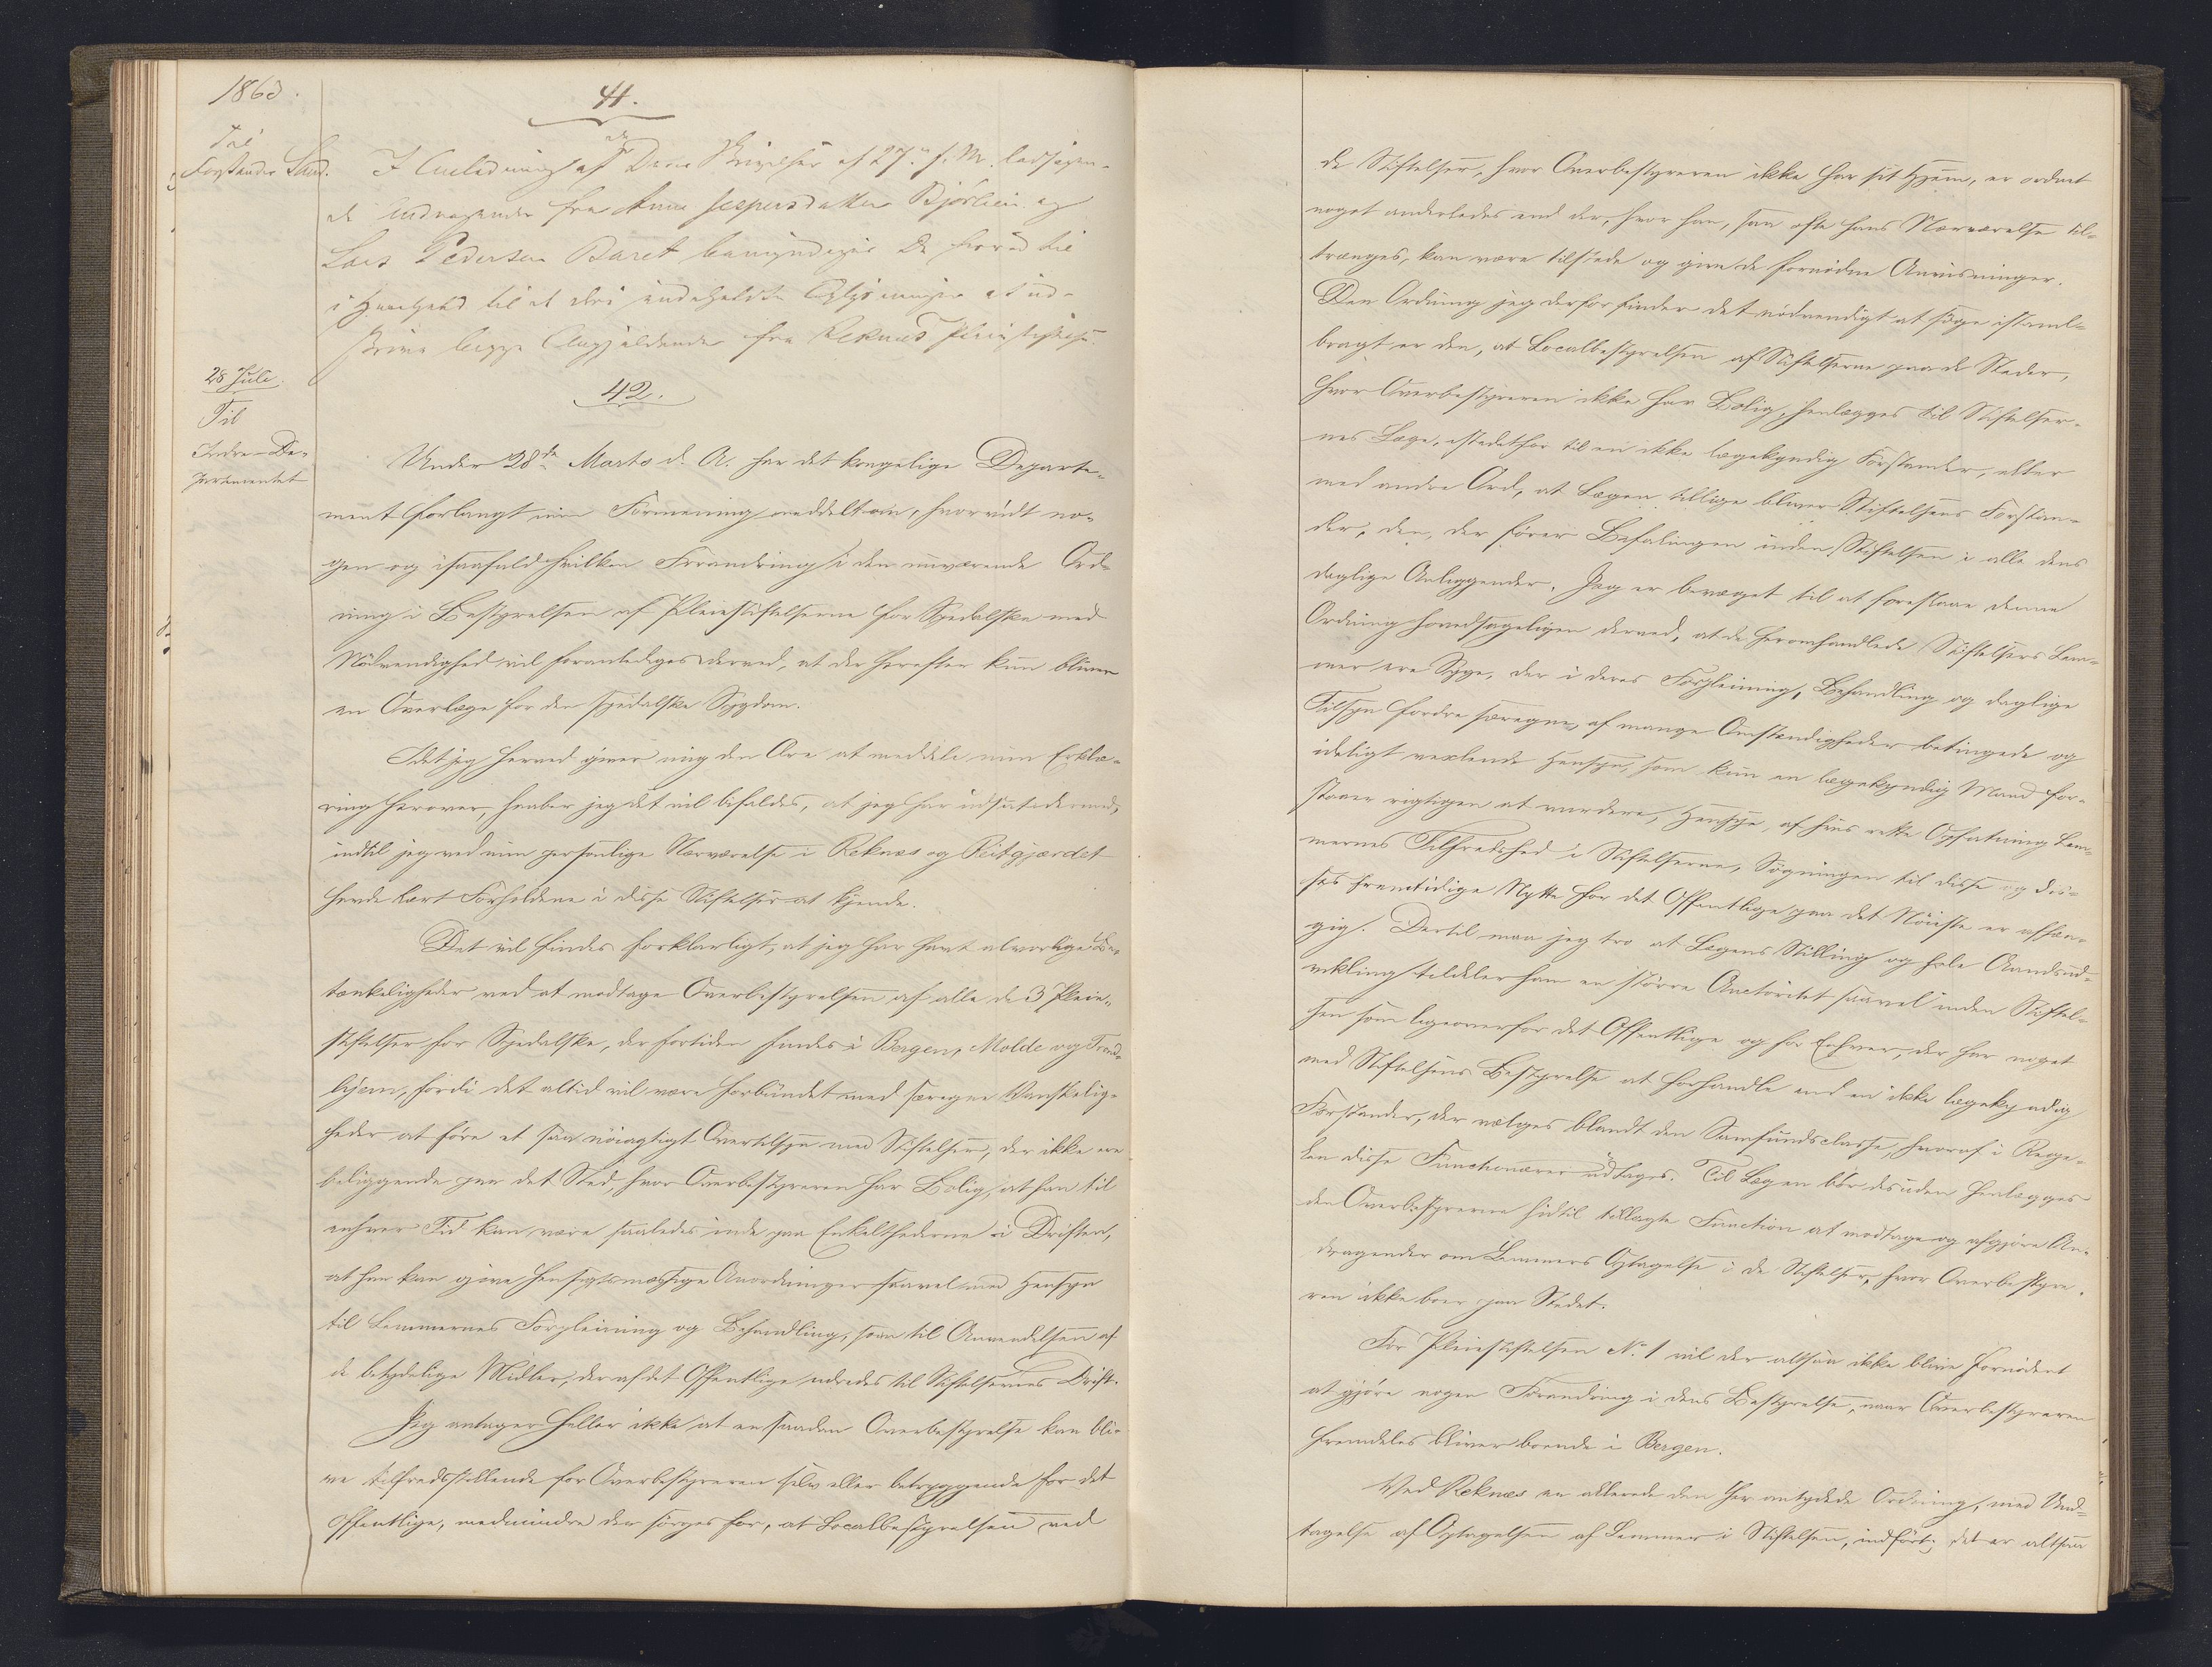 1863.
41.
Til
Forstander Lund.
I Anledning af Deres Skrivelse af 27de f. M. ledsagen-
de Andragender fra Anne Jespersdatter Bjørlien og
Lars Pedersen Baret bemyndiges De herved til
i Henhold til de deri indeholdte Oplysninger at ud-
skrive begge Angjældende fra Reknæs Pleiestiftelse.
28 Juli.
42.
Til
Indre-De-
partementet
Under 28de Marts d. A. har det kongelige Departe-
ment forlangt min Formening meddelt om, hvorvidt no-
gen og isaafald hvilken Forandring i den nuværende Ord-
ning i Bestyrelsen af Pleiestiftelserne for Spedalske med
Nödvendighed vil foranlediges derved, at der herefter kun bliver
en Overlæge for den spedalske Sygdom.
Idet jeg herved giver mig den Ære at meddele min Erklæ-
ring herover, haaber jeg det vil bifaldes, at jeg har udsat dermed,
indtil jeg ved min personlige Nærværelse i Reknæs og Reitgjærdet
havde lært Forholdene i disse Stiftelser at kjende.
Det vil findes forklarligt, at jeg har havt alvorlige Be-
tænkeligheder ved at modtage Overbestyrelsen af alle de 3 Pleie-
stiftelser for Spedalske, der fortiden findes i Bergen, Molde og Trond-
hjem, fordi det altid vil være forbundet med særegne Vanskelig-
heder at före et saa nöiagtigt Overtilsyn med Stiftelser, der ikke ere
beliggende paa det Sted, hvor Overbestyreren har Bolig, at han til
enhver Tid kan være saaledes inde paa Enkelthederne i Driften,
at han kan give hensigtsmæssige Anordninger saavel med Hensyn
til Lemmernes Forpleining og Behandling, som til Anvendelsen af
de betydelige Midler, der af det Offentlige udredes til Stiftelsernes Drift.
Jeg antager heller ikke at en saadan Overbestyrelse kan bli-
ve tilfredsstillende for Overbestyreren selv eller betryggende for det
Offentlige, medmindre der sörges for, at Localbestyrelsen ved
de Stiftelser, hvor Overbestyreren ikke har sit Hjem, er ordnet
noget anderledes end der, hvor han, saa ofte hans Nærværelse til-
trænges, kan være tilstede og give de fornödne Anviisninger.
Den Ordning jeg derfor finder det nödvendigt at söge istand-
bragt er den, at Localbestyrelsen af Stiftelserne paa de Steder,
hvor Overbestyreren ikke har Bolig, henlægges til Stiftelser-
nes Læge, istedetfor til en ikke lægekyndig Forstander, eller
med andre Ord, at Lægen tillige bliver Stiftelsens Forstan-
der, den, der förer Befalingen inden Stiftelsen i alle dens
daglige Anliggender. Jeg er bevæget til at foreslaae denne
Ordning hovedsageligen derved, at de heromhandlede Stiftelsers Lem-
mer ere Syge, der i deres Forpleining, Behandling og daglige
Tilsyn fordre særegne, af mange Omstændigheder betingede og
ideligt vexlende Hensyn, som kun en lægekyndig Mand for-
staaer rigtigen at vurdere, Hensyn, af hvis rette Opfatning Lem-
mernes Tilfredshed i Stiftelserne, Sögningen til disse og dis-
ses fremtidige Nytte for det Offentlige paa det Nöieste er afhæn-
gig. Dertil maa jeg tro at Lægens Stilling og hele Aandsud-
vikling tildeler ham en större Auctoritet saavel inden Stiftel-
sen som ligeoverfor det Offentlige og for Enhver, der har noget
med Stiftelsens Bestyrelse at forhandle end en ikke lægekyndig
Forstander, der vælges blandt den Samfundsclasse, hvoraf i Rege-
len disse Functionærer udtages. Til Lægen bör desuden henlægges
den Overbestyreren hidtil tillagte Function at modtage og afgjöre An-
dragender om Lemmers Optagelse i de Stiftelser, hvor Overbestyre-
ren ikke boer paa Stedet.
For Pleiestiftelsen No 1 vil der altsaa ikke blive fornödent
at gjöre nogen Forandring i dens Bestyrelse, naar Overbestyreren
fremdeles bliver boende i Bergen.
Ved Reknæs er allerede den her antydede Ordning, med Und-
tagelse af Optagelsen af Lemmer i Stiftelsen, indfört; det er altsaa